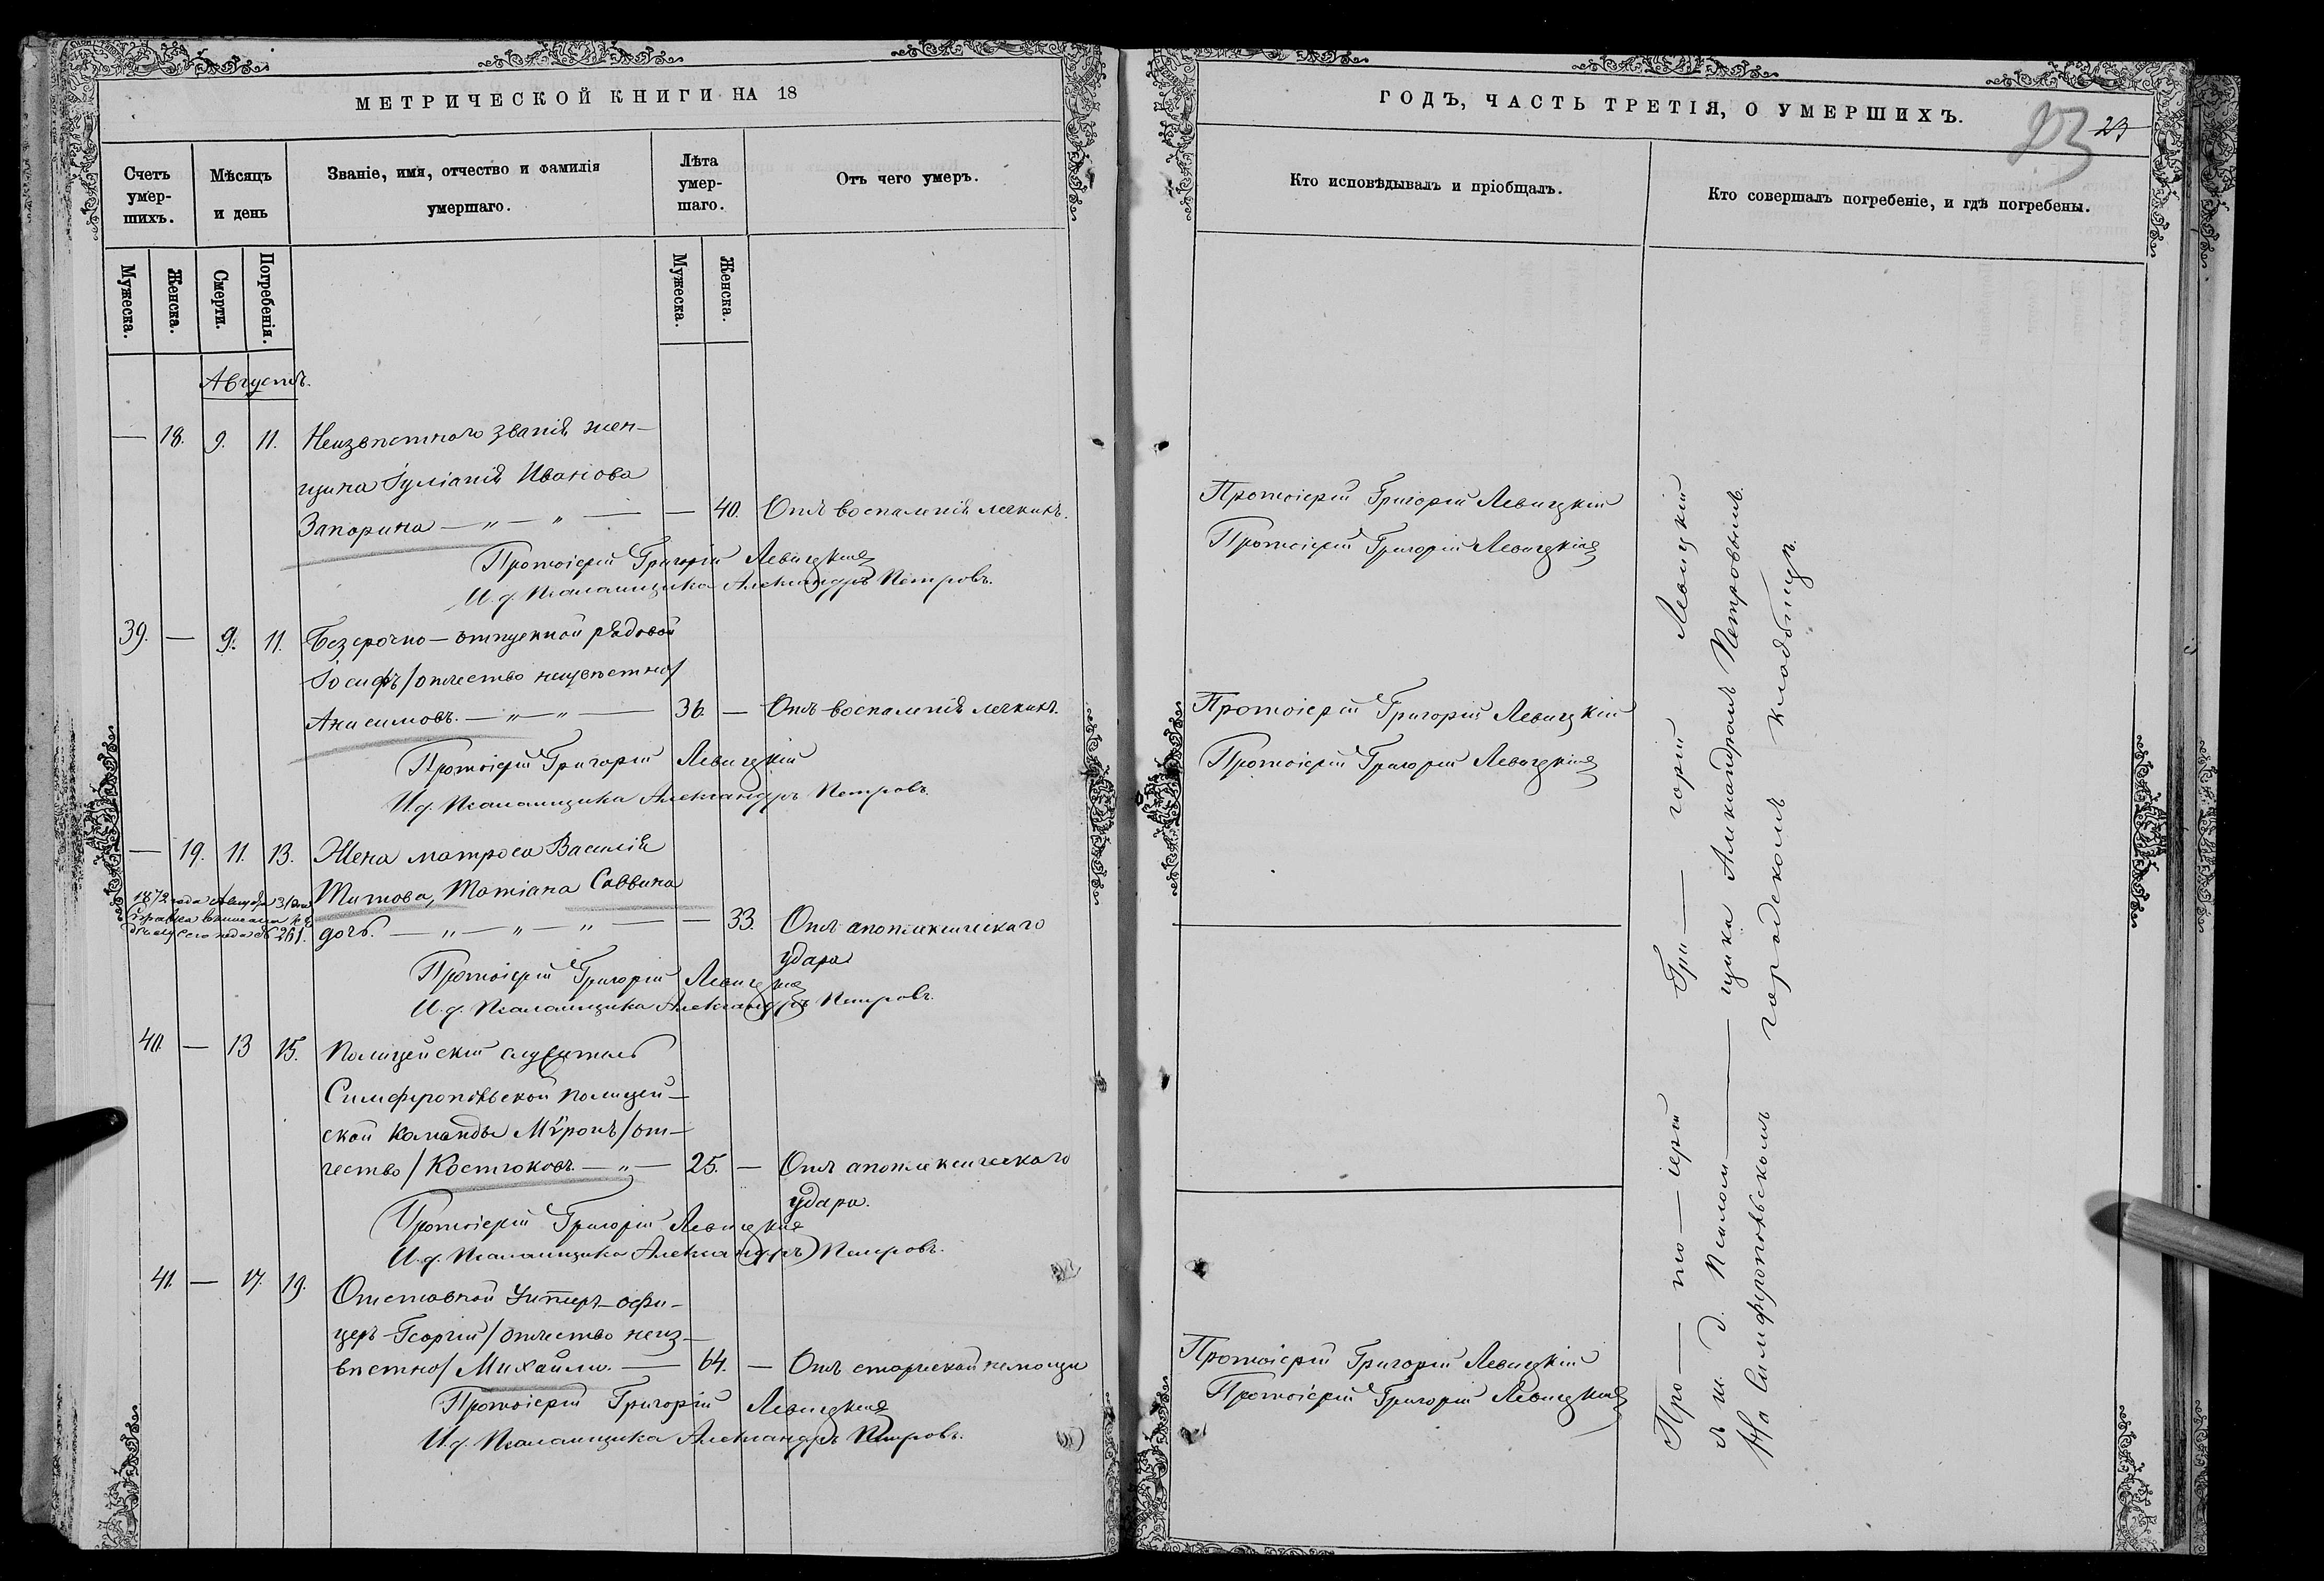 МЕТРИЧЕСКОЙ КНИГИ НА 18
Счетъ умер-шихъ.
Мѣсяцъ и день
Званіе, имя, отчество и фамилія умершаго.
Лѣта умер-шаго.
Отъ чего умеръ.
Мужеска.
Женска.
Смерти.
Погребенія.
Мужеска.
Женска.
Августъ.
— 18. 9. 11. Неизвѣстнаго званія жен-
щина Іуліанія Иванова
Запорина — „ — „ — — 40. Отъ воспаленія легкихъ.
Протоіерей Григорій Левицкій
И. д. Псаломщика Александръ Петровъ.
39. — 9. 11. Безсрочно-отпускной рядовой
Іосифъ /отчество неизвѣстно/
Анисимовъ. — „ — „ — 36. — Отъ воспаленія легкихъ.
Протоіерей Григорій Левицкій
И. д. Псаломщика Александръ Петровъ.
— 19. 11. 13. Жена матроса Василія
Титова, Татіана Саввина
1872 года
№ 261.
дочь. — „ — „ — „ — — 33. Отъ апоплексическаго
удара
Протоіерей Григорій Левицкій
И. д. Псаломщика Александръ Петровъ.
40. — 13 15. Полицейскій служитель
Симферопольской полицей-
ской команды Мѵронъ /от-
чество/ Костюковъ. — „ — 25. — Отъ апоплексическаго
удара.
Протоіерей Григорій Левицкій
И. д. Псаломщика Александръ Петровъ.
41. — 17. 19. Отставной Унтеръ-офи-
церъ Георгій /отчество неиз-
вѣстно/ Михайли. — 64. — Отъ старческой немощи
Протоіерей Григорій Левицкій
И. д. Псаломщика Александръ Петровъ.
ГОДЪ, ЧАСТЬ ТРЕТІЯ, О УМЕРШИХЪ.
23
Кто исповѣдывалъ и пріобщалъ.
Кто совершалъ погребеніе, и гдѣ погребены.
Протоіерей Григорій Левицкій
Протоіерей Григорій Левицкій
Протоіерей Григорій Левицкій
Протоіерей Григорій Левицкій
Протоіерей Григорій Левицкій
Протоіерей Григорій Левицкій
Про — то — іерей Гри — горій Левицкій
съ и. д. Псалом — щика Александромъ Петровымъ.
На Симферопольскомъ городскомъ кладбищѣ.